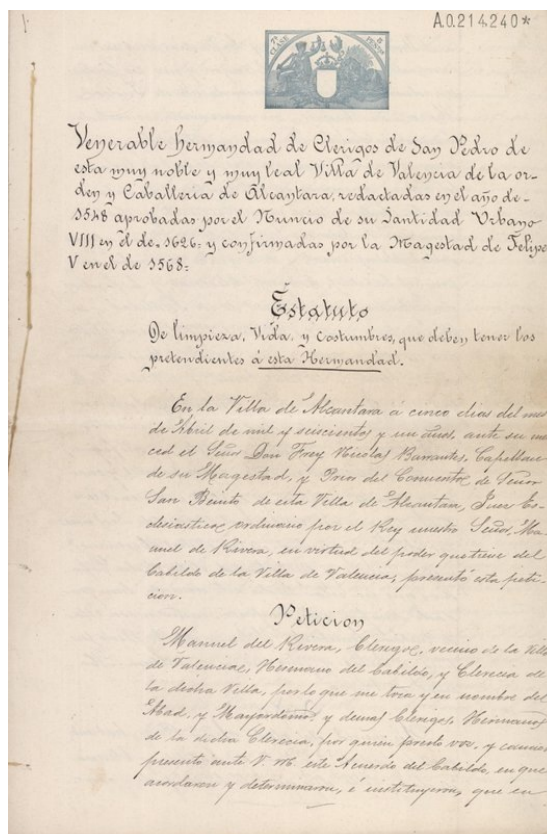 A.0.214.240*
7ª CLASE
Venerable hermandad de Clerigos de San Pedro de
esta muy noble y muy leal Villa de Valencia de la or-
den y Caballeria de Alcantara, redactadas en el año de-
1548 aprobadas por el Nuncio de su Santidad Urbano
VIII en el de 1626= y confirmadas por la Magestad de Felipe
V en el de 1568=
Estatuto
De limpieza, Vida, y costumbres, que deben tener los
pretendientes á esta Hermandad.
En la Villa de Alcantara á cinco dias del mes
de Abril de mil y seiscientos y un años, ante su mer
ced el Señor Don Frey Nicolas Barrantes, Capellan
de su Magestad, y Prior del Convento de Señor
San Benito de esta Villa de Alcantara, Juez Ec-
clesiastico ordinario por el Rey nuestro Señor, Ma-
nuel de Rivera, en virtud del poder que tiene del
Cabildo de la Villa de Valencia, presentó esta peti-
cion.
Peticion
Manuel del Rivera, Clerigo, vecino de la Villa
de Valencia, Hermano del Cabildo, y Clerecia de
la dicha Villa, por lo que me toca y en nombre del
Abad, y Mayordomo y demas Clerigos, Hermanos
de la dicha Clerecia, por quien presto voz, y caucion
presento ante V. M. este Acuerdo del Cabildo, en que
acordaron y determinaron, é instituyeron, que en